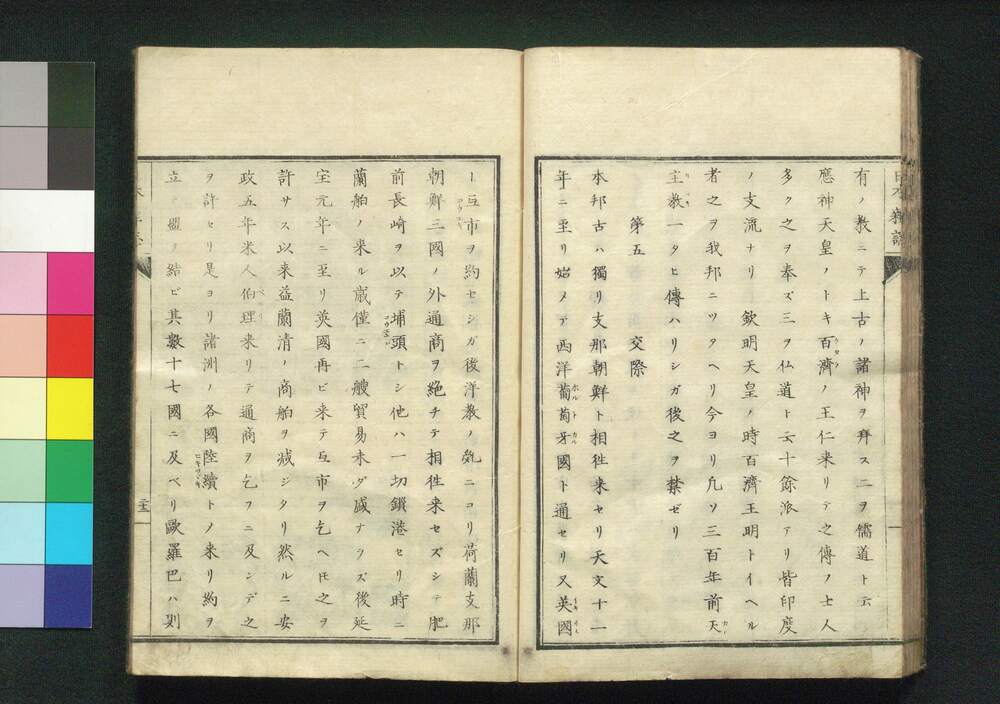 有ノ教ニテ上古ノ諸神ヲ拜ス二ヲ儒道ト云
應神天皇ノトキ百濟ノ王仁来リテ之傳フ士人
多ク之ヲ奉ズ三ヲ仏道ト云十餘派アリ皆印度
ノ支流ナリ 欽明天皇ノ時百濟王明トイヘル
者之ヲ我邦ニツタヘリ今ヨリ凡ソ三百年前天
主教一タヒ傳ハリシガ後之ヲ禁ゼリ
第五 交際
本邦古ハ獨リ支那朝鮮ト相徃来セリ天文十一
年ニ至リ始メテ西洋葡萄牙國ト通セリ又英國
ト互市ヲ約セシガ後洋教ノ乱ニコリ荷蘭支那
朝鮮三國ノ外通商ヲ絶チテ相徃来セズシテ肥
前長崎ヲ以テ埔頭トシ他ハ一切鎖港セリ時ニ
蘭舶ノ来ル歳僅ニ二艘貿易未ダ盛ナラズ後延
宝元年ニ至リ英國再ビ来テ互市ヲ乞ヘ𪜈之ヲ
許サス以来益蘭清ノ商舶ヲ减ジタリ然ルニ安
政五年米人伯理来リテ通商ヲ乞フニ及ンデ之
ヲ許セリ是ヨリ諸洲ノ各國陸續トノ来リ約ヲ
立ノ盟ヲ結ビ其數十七國ニ及ベリ歐羅巴ハ則
二十五